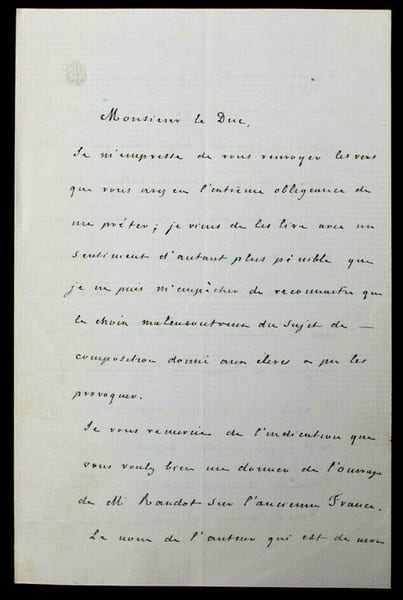 Monsieur le Duc,
Je m'empresse de vous renvoyer les vers
que vous avez eu l'extrême obligeance de
me prêter; je viens de les lire avec un
sentiment d'autant plus pénible que
je ne puis m'empêcher de reconnaitre que
le choix malencontreux du sujet de —
composition donné aux élèves a pu les
provoquer.
Je vous remercie de l'indication que
vous voulez bien me donner de l'ouvrage
de Mr Raudot sur l'ancienne France.
Le nom de l'auteur qui est de mon